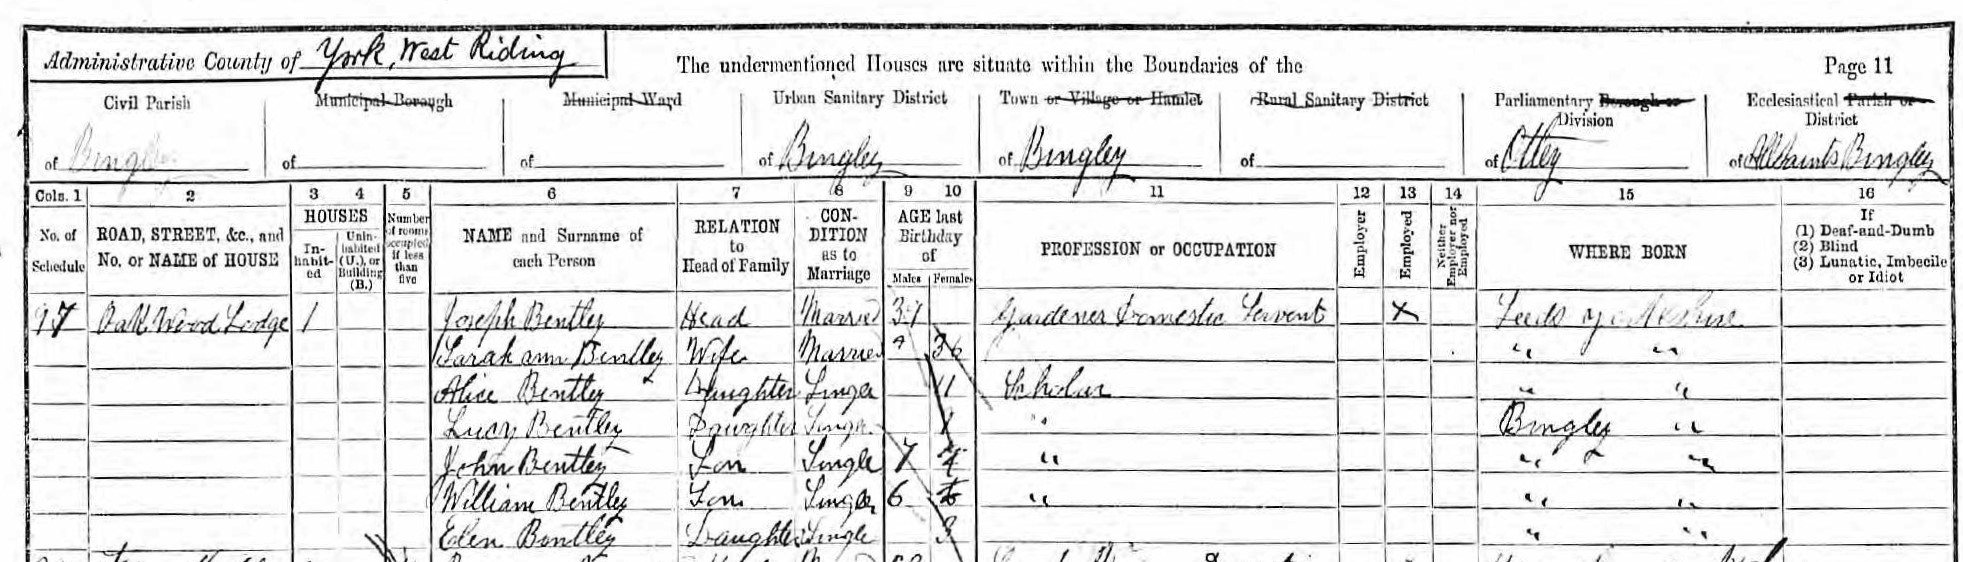 Administrative County of York, West Riding
The undermentioned Houses are situate within the Boundaries of the
Page 11
Civil Parish
Municipal Borough
Municipal Ward
Urban Sanitary District
Town or Village or Hamlet
Rural Sanitary District
Parliamentary Borough or Division
Ecclesiastical Parish or District
of Bingley
of
of
of Bingley
of Bingley
of
of Otley
of All Saints Bingley
Cols. 1 2 3 4 5 6 7 8 9 10 11 12 13 14 15 16
No. of Schedule
ROAD, STREET, &c., and No. or NAME of HOUSE
HOUSES
In-habit-ed
Unin-habited (U.), or Building (B.)
Number of rooms occupied if less than five
NAME and Surname of each Person
RELATION to Head of Family
CON-DITION as to Marriage
AGE last Birthday of
Males Females
PROFESSION or OCCUPATION
Employer
Employed
Neither Employer nor Employed
WHERE BORN
If
(1) Deaf-and-Dumb
(2) Blind
(3) Lunatic, Imbecile or Idiot
97 Oak Wood Lodge 1 Joseph Bentley Head Married Gardener Domestic Servent X Leeds Yorkshire
Sarah ann Bentley Wife Married 36 " "
Alice Bentley Daughter Single 11 Scholar " "
Lucy Bentley Daughter Single " Bingley "
John Bentley Son Single 7 " " "
William Bentley Son Single 6 " " "
Elen Bentley Daughter Single 3 " "